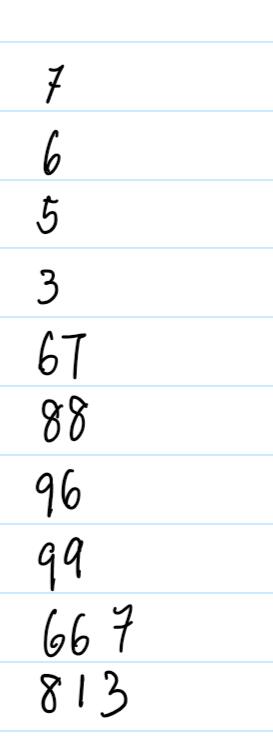 7
6
5
3
67
88
96
99
667
813